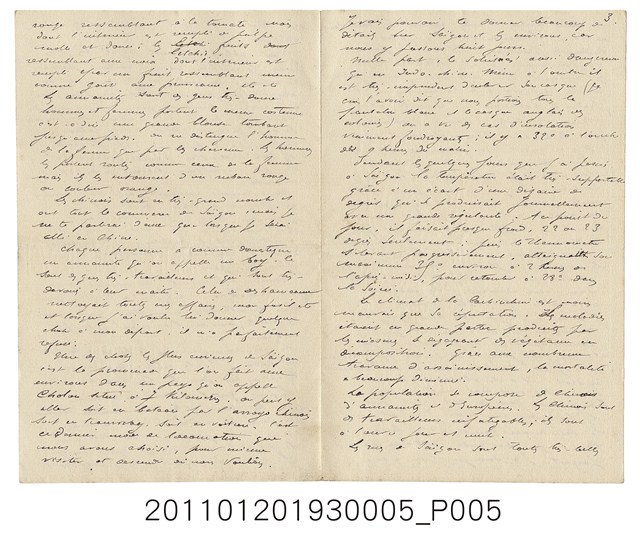 rouge ressemblant à la tomate mais
dont l'intérieur est rempli de pulpe
molle et douce; les letchis fruits dont
ressemblant aux noix dont l'intérieur est
rempli par un fruit ressemblant même
comme goût aux
Les annamites sont des gens très-doux
hommes et femmes portent le même costume
c'est-à-dire une grande blouse tombant
jusqu'aux pieds. On ne distingue l'homme
de la femme que par les cheveux. Les hommes
les portent roulés comme ceux de la femme
mais ils les entourent d'un ruban rouge
ou couleur orange.
Les chinois sont en très-grand nombre et
ont tout le commerce de Saïgon; mais je
ne te parlerai d'eux que lorsque je serai
allé en Chine.
Chaque personne a comme domestique
un annamite qu'on appelle un boy. Ils
sont des gens très-travailleurs et qui sont très-
dévoués à leur maître. Celui de
nettoyait toutes mes affaires, mon fusil etc
et lorsque j'ai voulu lui donner quelque
chose à mon départ il m'a parfaitement
refusé.
Une des choses les plus curieuses de Saïgon
c'est la promenade que l'on fait aux
environs dans un pays qu'on appelle
Cholon situé à 7 kilomètres. On peut y
aller soit en bateau par l'arroyo chinois
soit en tramway, soit en voiture. C'est
ce dernier mode de locomotion que
nous avons choisi, pour mieux
visiter et descendre où nous voulions.
3.
Je vais pouvoir te donner beaucoup de
détails sur Saïgon et les environs car
nous y passons huit jours.
Nulle part, le soleil n'est aussi dangereux
qu'en Indo-Chine. Même à l'ombre il
est très-imprudent d'ôter son casque (je
crois t'avoir dit que nous portions tous le
pantalon blanc et le casque anglais des
colonies) on a vu des cas d'insolation
vraiment foudroyants; il y a 32° à l'ombre
dès 9 heures du matin.
Pendant les quelques jours que j'ai passés
à Saïgon la température était très-supportable
grâce à un écart d'une dizaine de
degrés qui se produisait journellement
avec une grande régularité. Au point du
jour, il faisait presque frais, 22 ou 23
degrés seulement; puis le thermomètre
s'élevant progressivement, atteignait son
maximum 35° environ à 2 heures de
l'après-midi, pour retomber à 28° dans
la soirée.
Le climat de la Cochinchine est moins
mauvais que sa réputation. Les maladies
étaient en grande partie produites par
les miasmes se dégageant des végétaux en
décomposition. Grâce aux nombreux
travaux d'assainissement, la mortalité
a beaucoup diminué.
La population se compose de Chinois
d'annamites et d'européens. Les Chinois sont
des travailleurs infatigables; ils sont
à l'œuvre jour et nuit.
Les rues à Saïgon sont toutes très-belles
201101201930005_P005